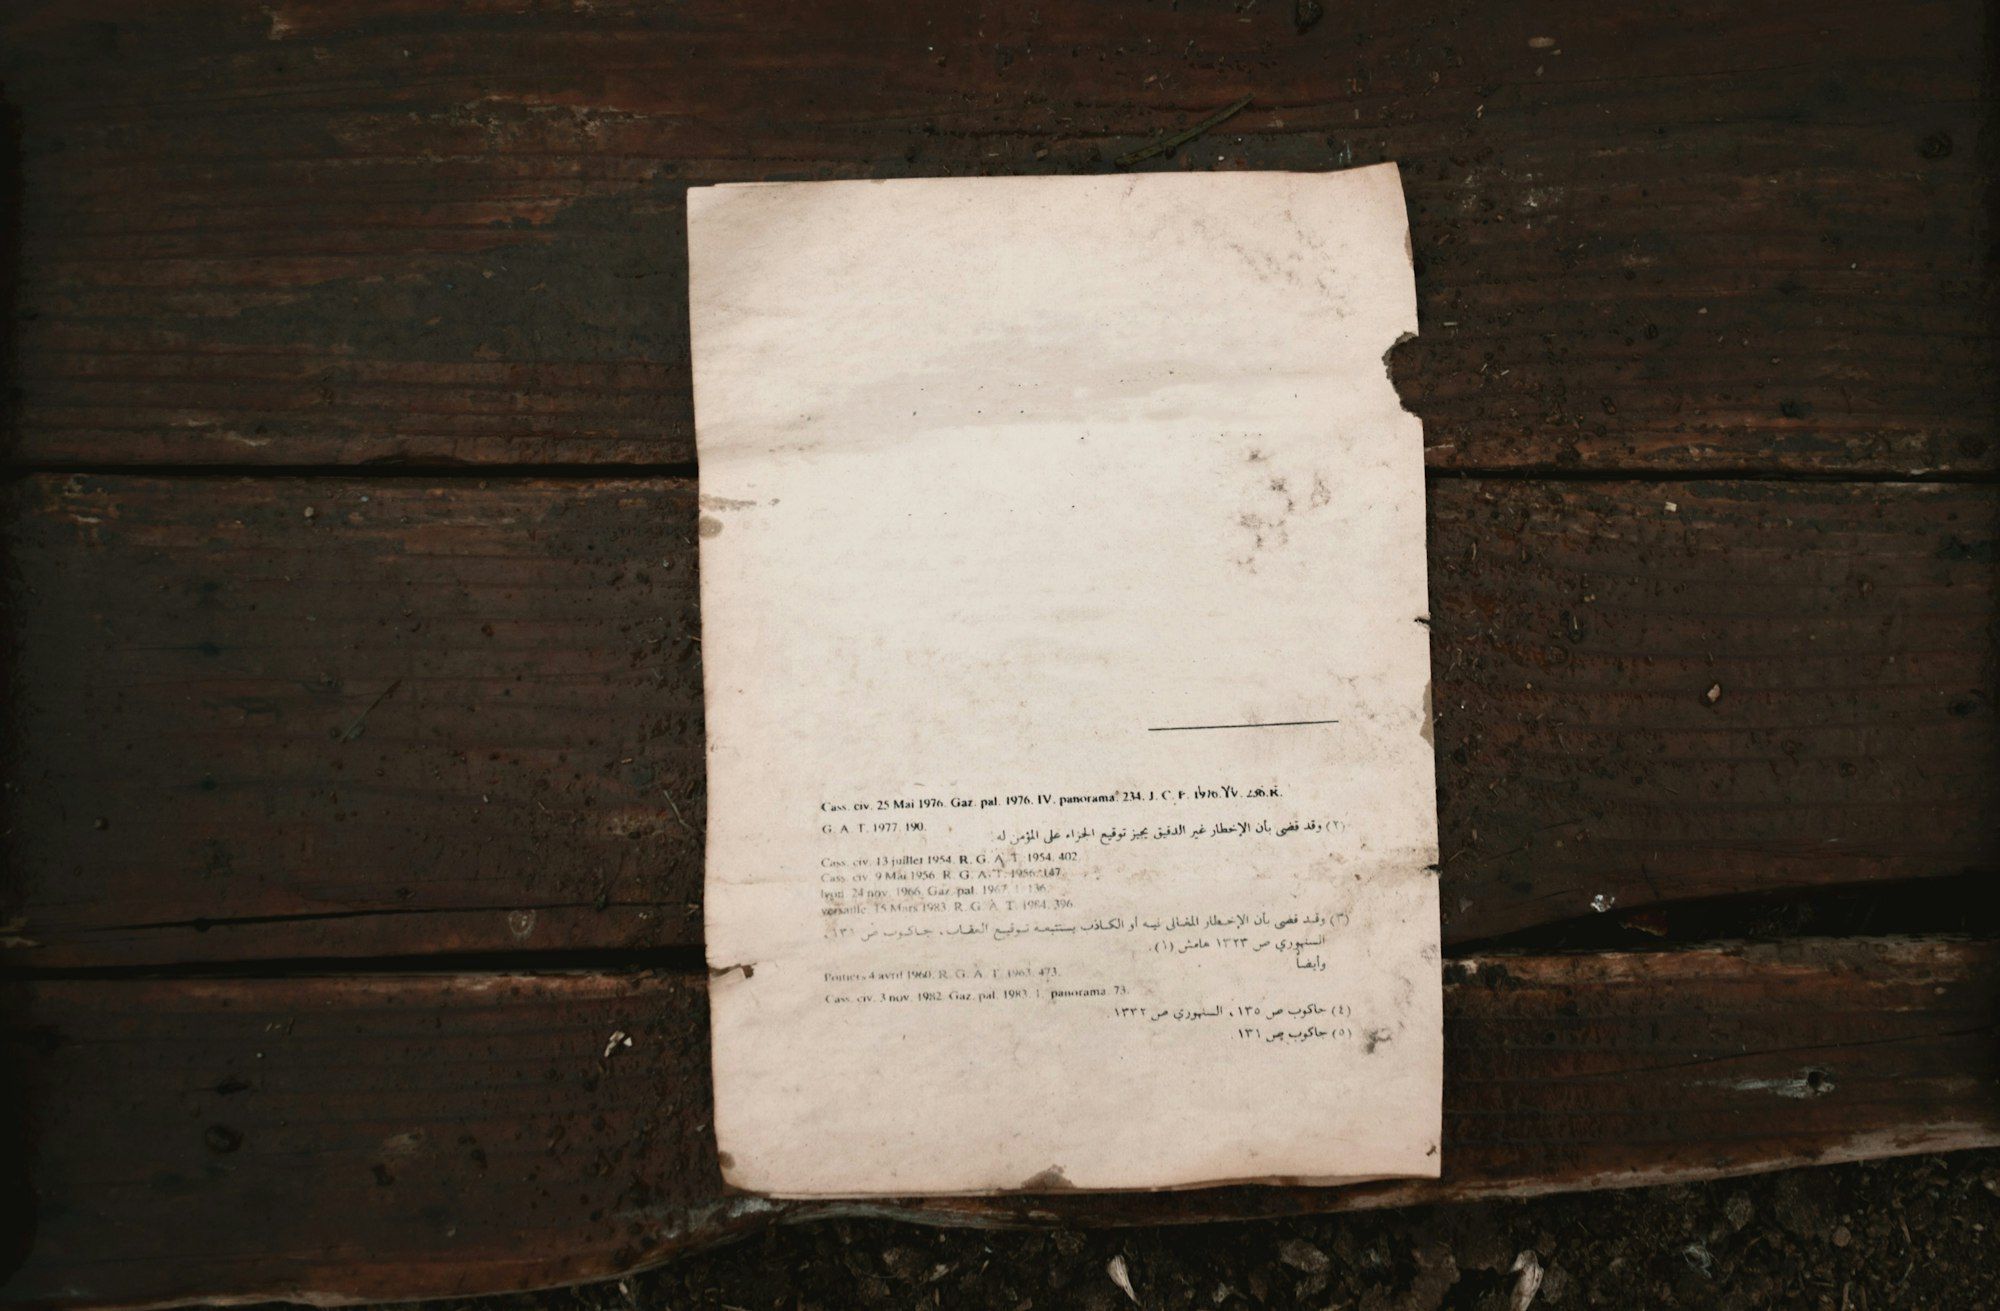 Cass. civ. 25 Mai 1976. Gaz. pal. 1976. IV. panorama. 234. J. C. P. 1976. IV. 236. R.
G. A. T. 1977. 190.
(٢) وقد قضى بأن الإخطار غير الدقيق يجيز توقيع الجزاء على المؤمن له.
Cass. civ. 13 juillet 1954. R. G. A. T. 1954. 402.
Cass. civ. 9 Mai 1956. R. G. A. T. 1956. 147.
lyon. 24 nov. 1966. Gaz. pal. 1967. 1. 136.
versaille. 15 Mars 1983. R. G. A. T. 1984. 396.
(٣) وقد قضى بأن الإخطار المغالى فيه أو الكاذب يستتبعه توقيع العقاب، جاكوب ص ١٣١،
السنهوري ص ١٣٢٣ هامش (١).
وأيضاً
Poitiers 4 avril 1960. R. G. A. T. 1963. 473.
Cass. civ. 3 nov. 1982. Gaz. pal. 1983. 1. panorama. 73.
(٤) جاكوب ص ١٣٥، السنهوري ص ١٣٣٢.
(٥) جاكوب ص ١٣١.